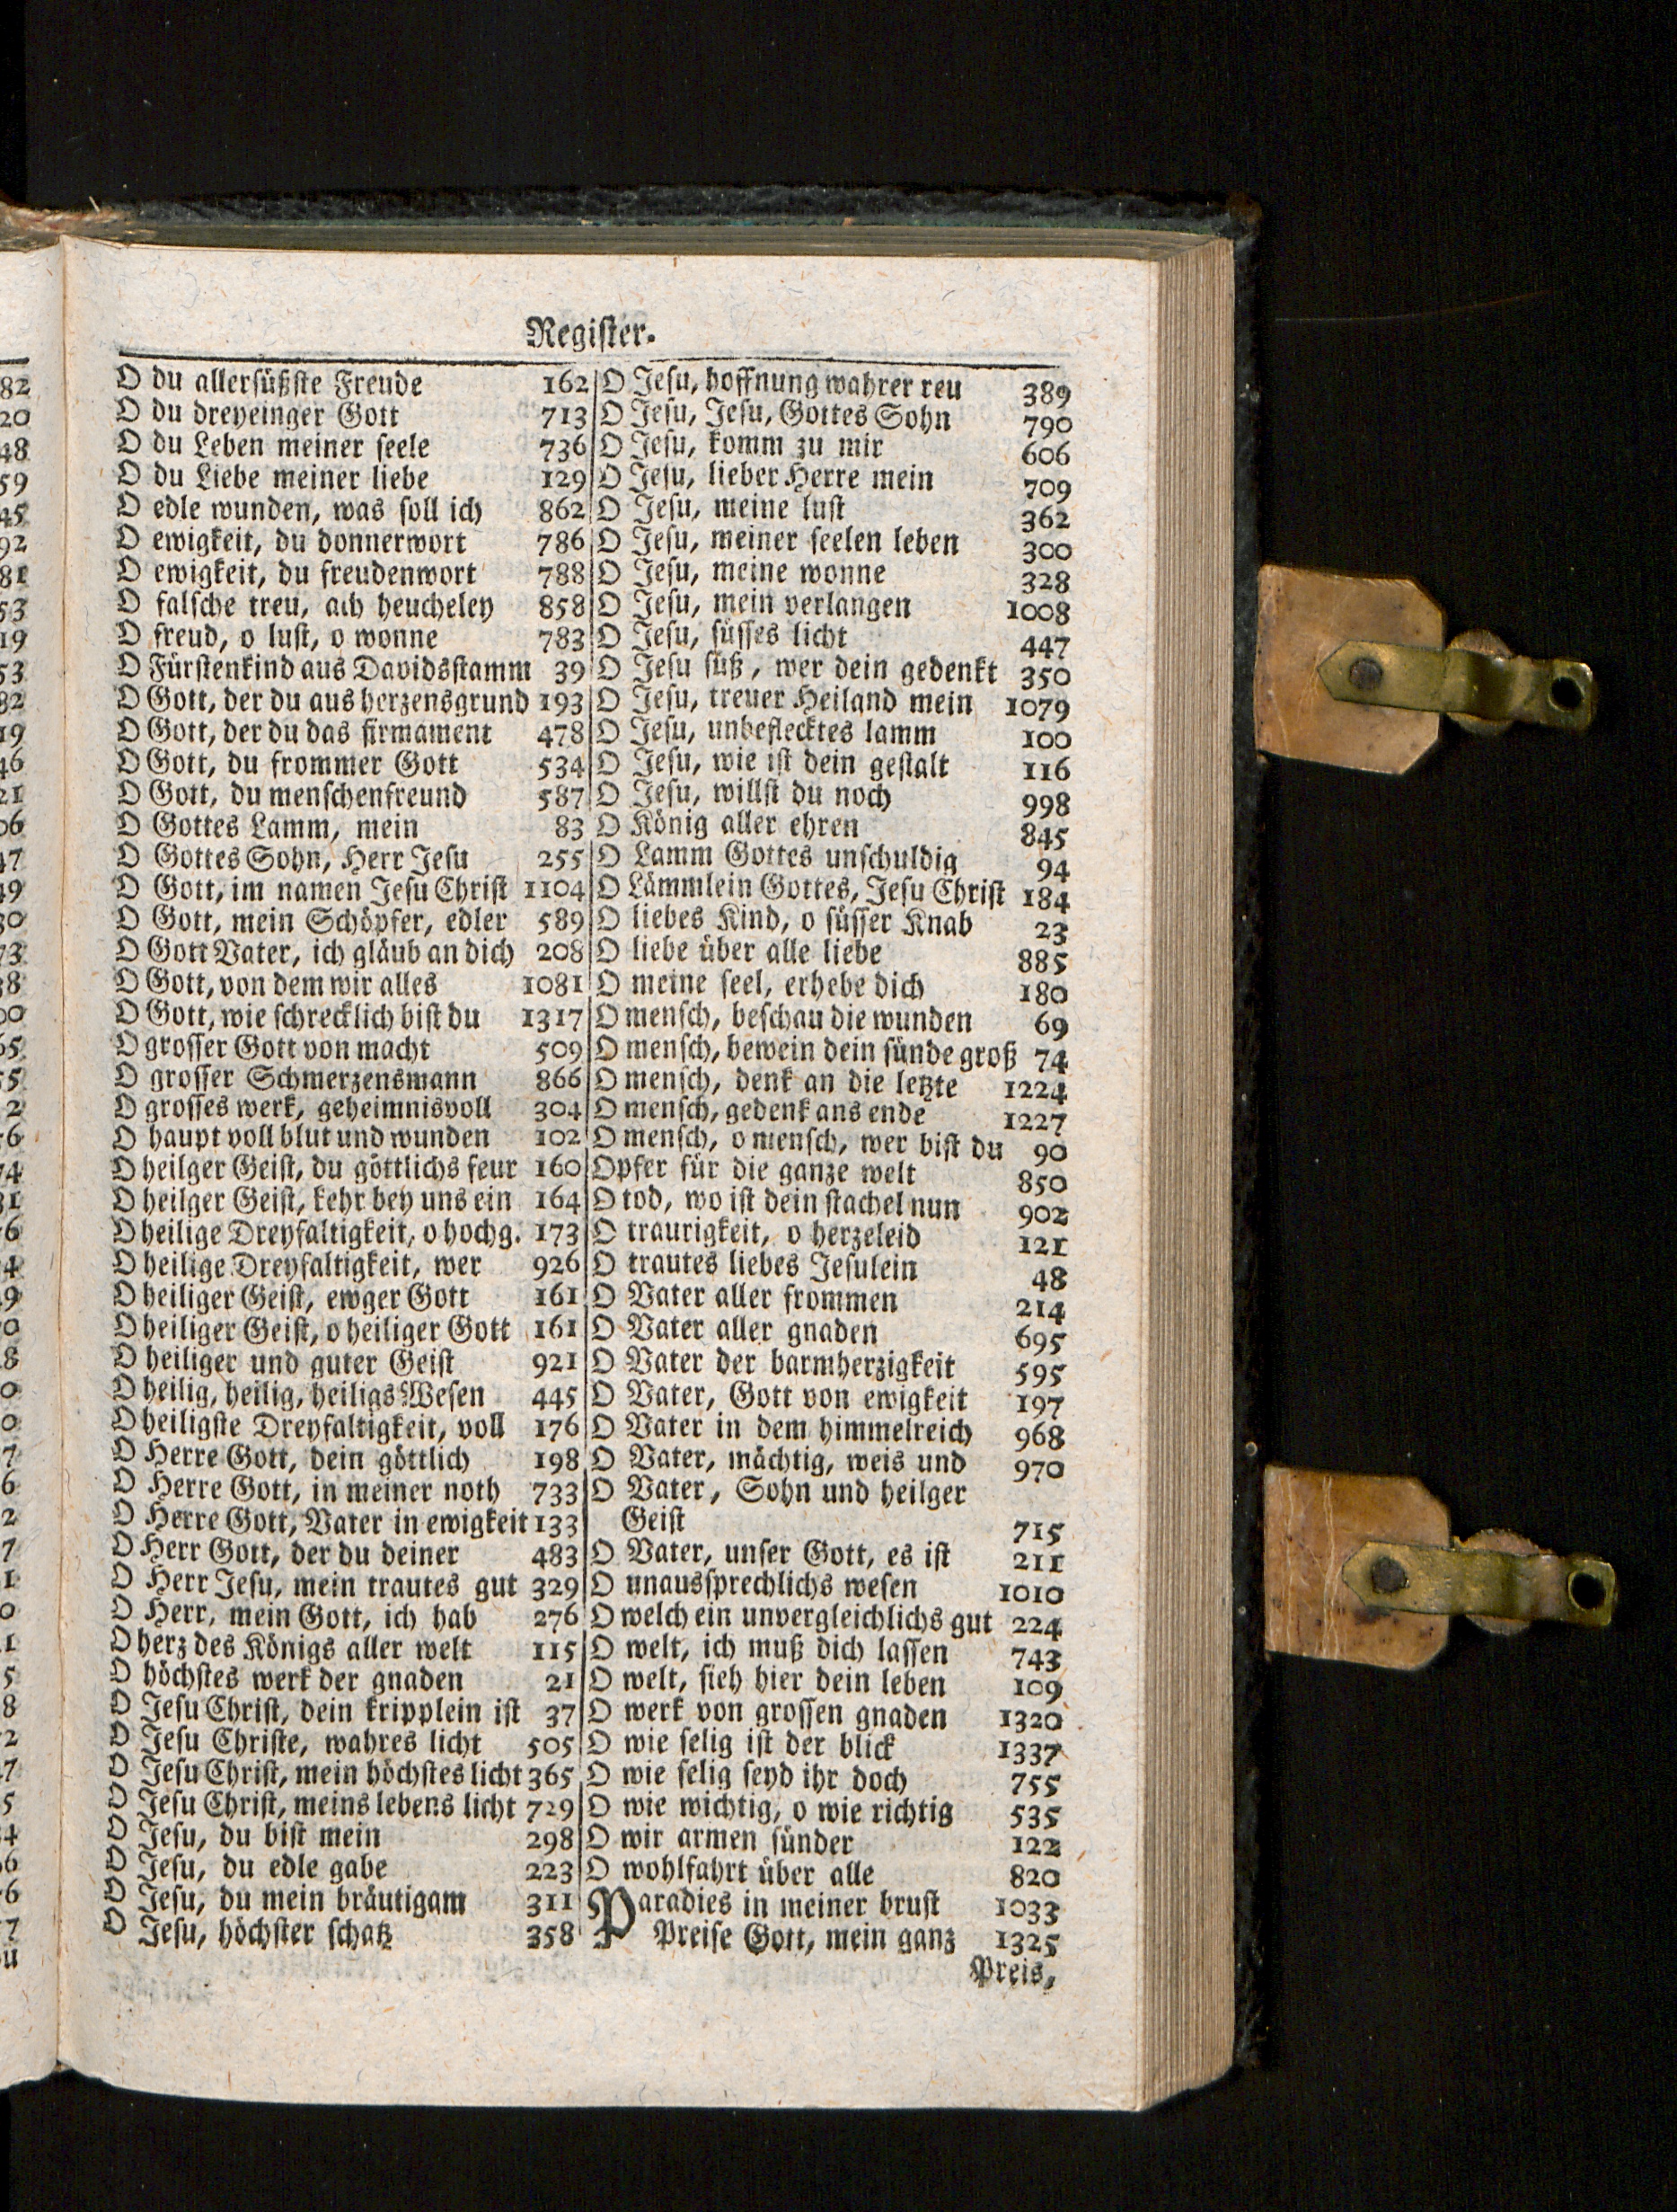 Register.
O du allersüßste Freude 162
O du dreyeinger Gott 713
O du Leben meiner seele 736
O du Liebe meiner liebe 129
O edle wunden, was soll ich 862
O ewigkeit, du donnerwort 786
O ewigkeit, du freudenwort 788
O falsche treu, ach heucheley 858
O freud, o lust, o wonne 783
O Fürstenkind aus Davidsstamm 39
O Gott, der du aus herzensgrund 193
O Gott, der du das firmament 478
O Gott, du frommer Gott 534
O Gott, du menschenfreund 587
O Gottes Lamm, mein 83
O Gottes Sohn, Herr Jesu 255
O Gott, im namen Jesu Christ 1104
O Gott, mein Schöpfer, edler 589
O Gott Vater, ich gläub an dich 208
O Gott, von dem wir alles 1081
O Gott, wie schrecklich bist du 1317
O grosser Gott von macht 509
O grosser Schmerzensmann 866
O grosses werk, geheimnisvoll 304
O haupt voll blut und wunden 102
O heilger Geist, du göttlichs feur 160
O heilger Geist, kehr bey uns ein 164
O heilige Dreyfaltigkeit, o hochg. 173
O heilige Dreyfaltigkeit, wer 926
O heiliger Geist, ewger Gott 161
O heiliger Geist, o heiliger Gott 161
O heiliger und guter Geist 921
O heilig, heilig, heiligs Wesen 445
O heiligste Dreyfaltigkeit, voll 176
O Herre Gott, dein göttlich 198
O Herre Gott, in meiner noth 733
O Herre Gott, Vater in ewigkeit 133
O Herr Gott, der du deiner 483
O Herr Jesu, mein trautes gut 329
O Herr, mein Gott, ich hab 276
O herz des Königs aller welt 115
O höchstes werk der gnaden 21
O Jesu Christ, dein kripplein ist 37
O Jesu Christe, wahres licht 505
O Jesu Christ, mein höchstes licht 365
O Jesu Christ, meins lebens licht 729
O Jesu, du bist mein 298
O Jesu, du edle gabe 223
O Jesu, du mein bräutigam 311
O Jesu, höchster schatz 358
O Jesu, hoffnung wahrer reu 389
O Jesu, Jesu, Gottes Sohn 790
O Jesu, komm zu mir 606
O Jesu, lieber Herre mein 709
O Jesu, meine lust 362
O Jesu, meiner seelen leben 300
O Jesu, meine wonne 328
O Jesu, mein verlangen 1008
O Jesu, süsses licht 447
O Jesu süß, wer dein gedenkt 350
O Jesu, treuer Heiland mein 1079
O Jesu, unbeflecktes lamm 100
O Jesu, wie ist dein gestalt 116
O Jesu, willst du noch 998
O König aller ehren 845
O Lamm Gottes unschuldig 94
O Lämmlein Gottes, Jesu Christ 184
O liebes Kind, o süsser Knab 23
O liebe über alle liebe 885
O meine seel, erhebe dich 180
O mensch, beschau die wunden 69
O mensch, bewein dein sünde groß 74
O mensch, denk an die letzte 1224
O mensch, gedenk ans ende 1227
O mensch, o mensch, wer bist du 90
Opfer für die ganze welt 850
O tod, wo ist dein stachel nun 902
O traurigkeit, o herzeleid 121
O trautes liebes Jesulein 48
O Vater aller frommen 214
O Vater aller gnaden 695
O Vater der barmherzigkeit 595
O Vater, Gott von ewigkeit 197
O Vater in dem himmelreich 968
O Vater, mächtig, weis und 970
O Vater, Sohn und heilger
Geist 715
O Vater, unser Gott, es ist 211
O unaussprechlichs wesen 1010
O welch ein unvergleichlichs gut 224
O welt, ich muß dich lassen 743
O welt, sieh hier dein leben 109
O werk von grossen gnaden 1320
O wie selig ist der blick 1337
O wie selig seyd ihr doch 755
O wie wichtig, o wie richtig 535
O wir armen sünder 122
O wohlfahrt über alle 820
Paradies in meiner brust 1033
Preise Gott, mein ganz 1325
Preis,